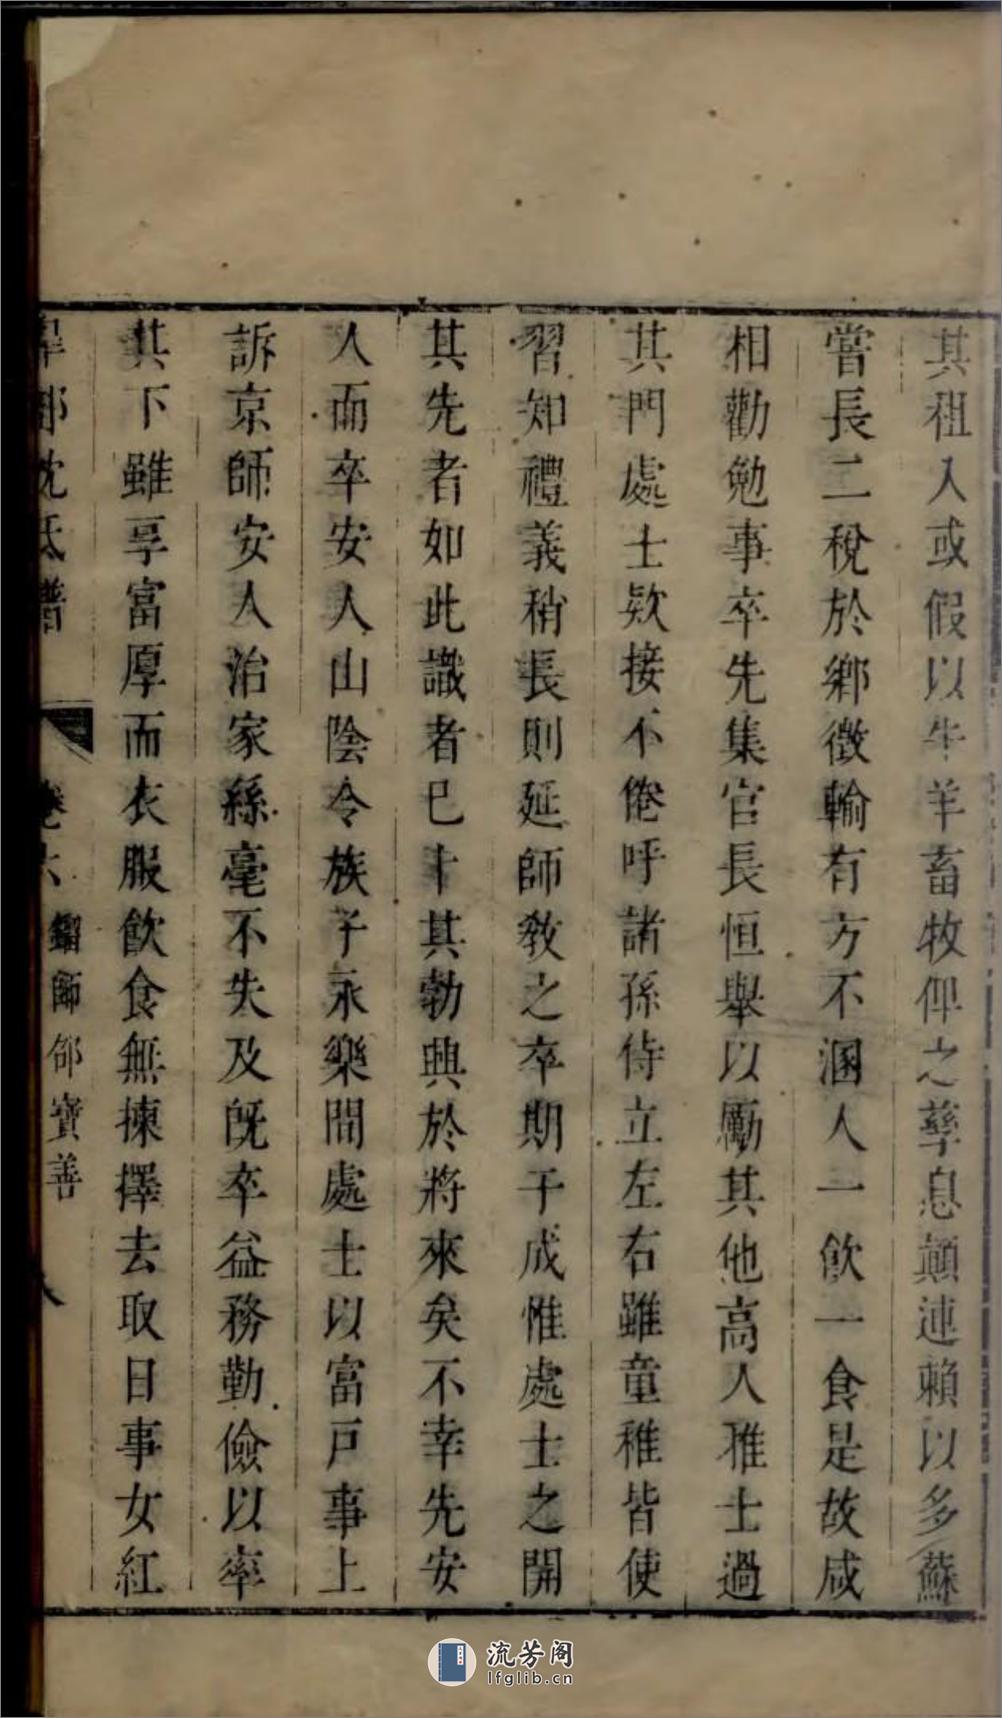 其祖入或假以牛羊畜牧俾之孳息顛連賴以多蘇
嘗長二稅於鄉徵輸有方不溷人一飲一食是故咸
相勸勉事卒先集官長恒舉以勵其他高人雅士過
其門處士欵接不倦呼諸孫侍立左右雖童稚皆使
習知禮義稍長則延師敎之卒期于成惟處士之開
其先者如此識者已卜其勃興於將來矣不幸先安
人而卒安人山陰令族子永樂間處士以富戶事上
訴京師安人治家絲毫不失及旣卒益務勤儉以率
其下雖享富厚而衣服飮食無揀擇去取日事女紅
沈氏譜
卷六
師邰寶善
八
流芳阁
lfglib.cn